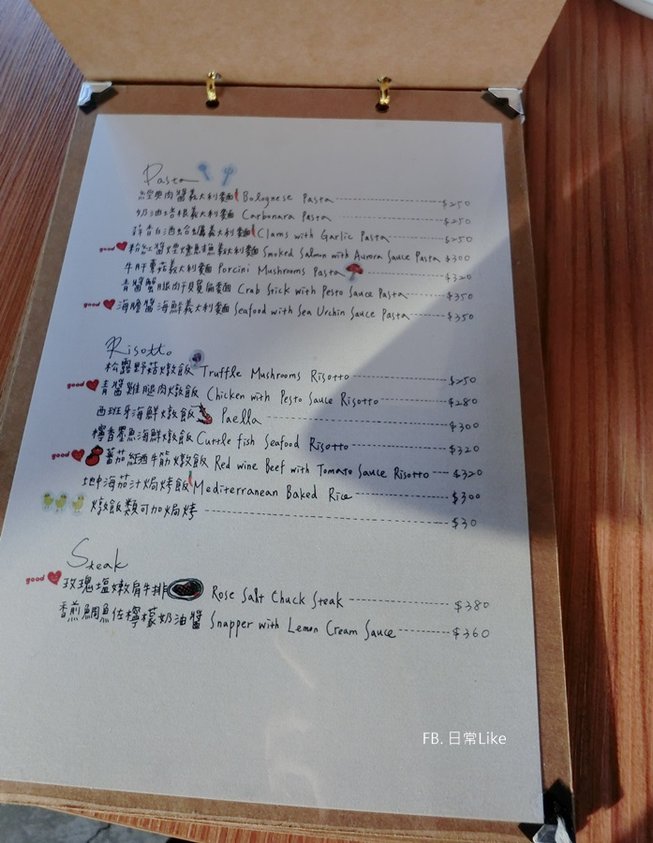 Pasta
經典肉醬義大利麵 Bolognese Pasta $250
奶油培根義大利麵 Carbonara Pasta $250
蒜香白酒蛤蠣義大利麵 Clams with Garlic Pasta $250
good 粉紅醬煙燻鮭魚義大利麵 Smoked Salmon with Aurora Sauce Pasta $300
牛肝蕈菇義大利麵 Porcini Mushrooms Pasta $320
青醬蟹腿肉干貝寬扁麵 Crab Stick with Pesto Sauce Pasta $350
good 海膽醬海鮮義大利麵 Seafood with Sea Urchin Sauce Pasta $350
Risotto
松露野菇燉飯 Truffle Mushrooms Risotto $250
good 青醬雞腿肉燉飯 Chicken with Pesto Sauce Risotto $280
西班牙海鮮燉飯 Paella $300
檸香墨魚海鮮燉飯 Cuttle fish Seafood Risotto $320
good 蕃茄紅酒牛筋燉飯 Red wine Beef with Tomato Sauce Risotto $320
地中海茄汁焗烤飯 Mediterranean Baked Rice $300
燉飯類可加焗烤 $30
Steak
good 玫瑰塩嫩肩牛排 Rose Salt Chuck Steak $380
香煎鯛魚佐檸檬奶油醬 Snapper with Lemon Cream Sauce $360
FB. 日常Like